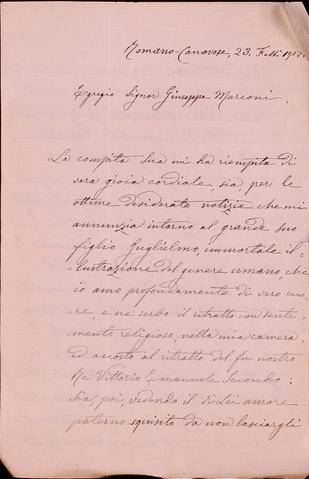 Romano-Canavese, 23. Febb. 1902.
Egregio Signor Giuseppe Marconi.
La compita sua mi ha riempita di
vera gioia cordiale, sia, per le
ottime desiderate notizie che mi
annunzia intorno al grande suo
figlio Guglielmo, immortale il=
=lustrazione del genere umano, che
io amo profondamente di vero cuo=
re, e ne serbo il ritratto, con senti=
mento religioso, nella mia camera,
ed accosto al ritratto del fu nostro
Re Vittorio Emanuele Secondo:
sia, poi, vedendo il di Lei amore
paterno squisito da non lasciargli